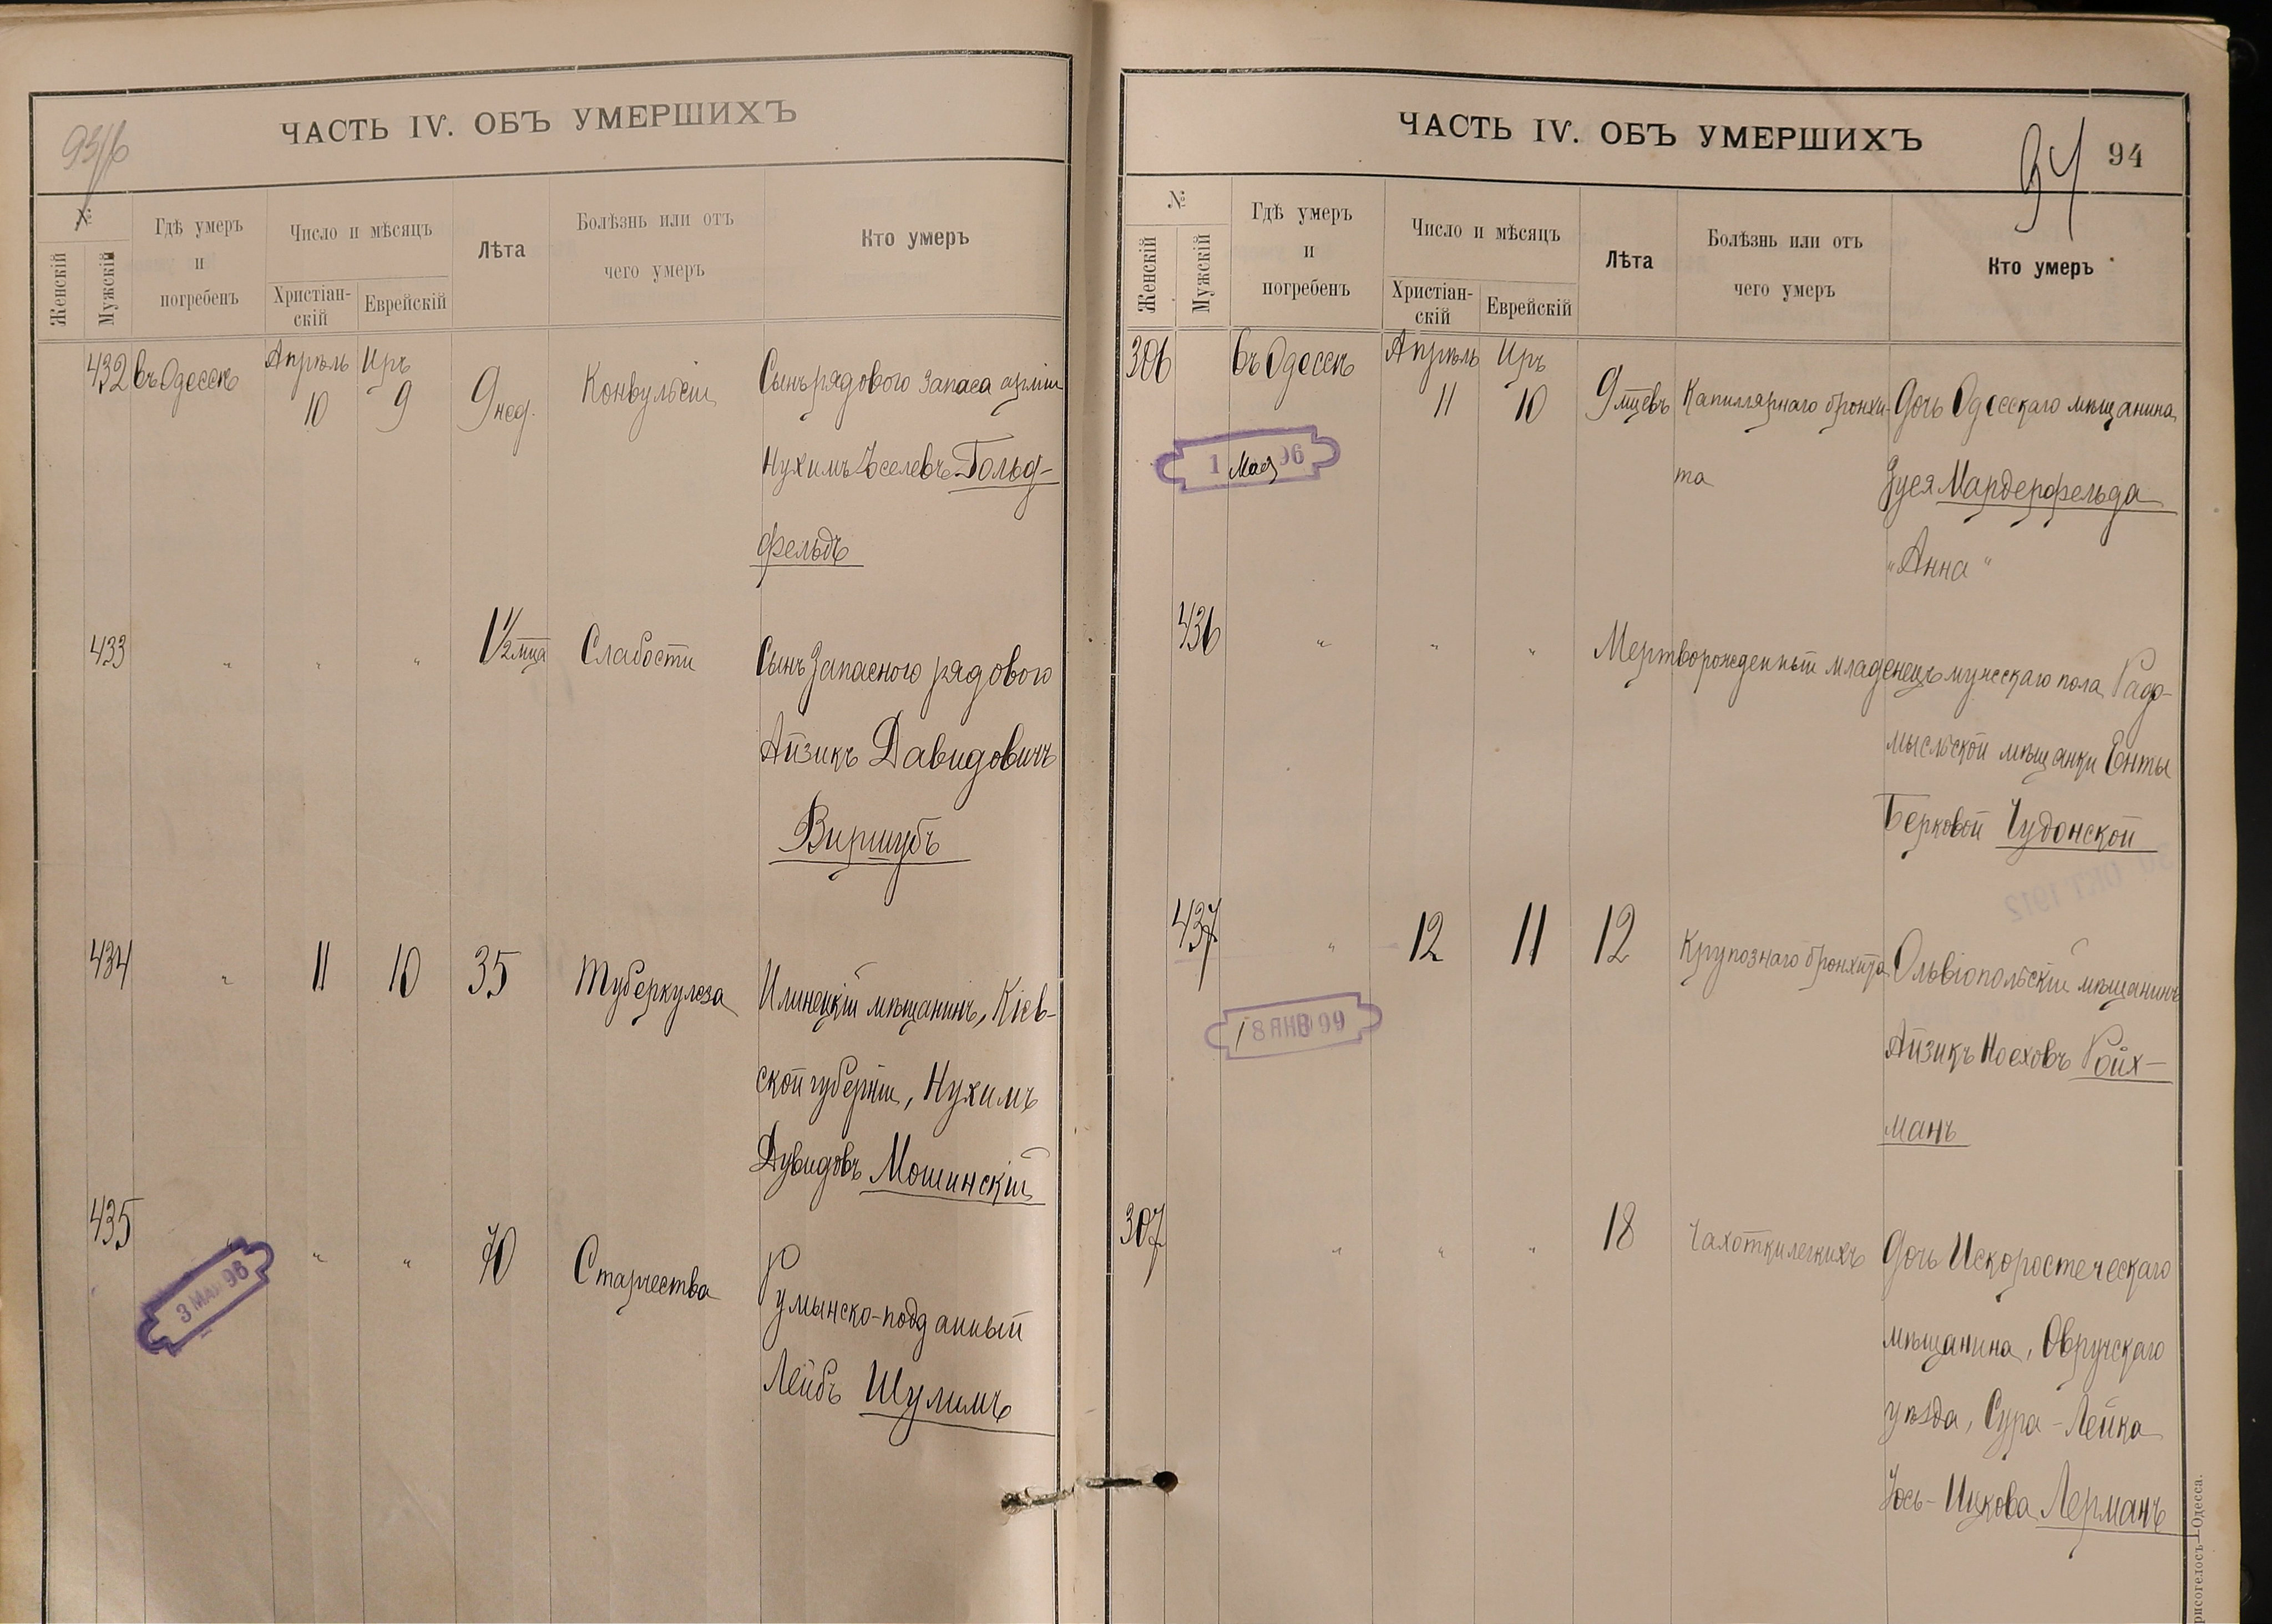 93/б
ЧАСТЬ IV. ОБЪ УМЕРШИХЪ
№
Женскій
Мужскій
Гдѣ умеръ
и
погребенъ
Число и мѣсяцъ
Христіан-
скій
Еврейскій
Лѣта
Болѣзнь или отъ
чего умеръ
Кто умеръ
432 въ Одессѣ Апрѣль 10 Иръ 9 9 нед. Конвульсіи Сынъ рядового запаса арміи
Нухимъ Іоселевъ Гольд-
фельдъ
433 " " " 1 1/2 мѣца Слабости Сынъ запасного рядового
Айзикъ Давидовичъ
Виршубъ
434 " 11 10 35 Туберкулеза Илинецкій мѣщанинъ, Кіев-
ской губерніи, Нухимъ
Дувидовъ Мошинскій
435 " " " 70 Старчества Румынско-подданный
3 МАЯ 96
Лейбъ Шулимъ
ЧАСТЬ IV. ОБЪ УМЕРШИХЪ
94
94
№
Женскій
Мужскій
Гдѣ умеръ
и
погребенъ
Число и мѣсяцъ
Христіан-
скій
Еврейскій
Лѣта
Болѣзнь или отъ
чего умеръ
Кто умеръ
306 въ Одессѣ Апрѣль 11 Иръ 10 9 мцевъ Капиллярнаго бронхи- Дочь Одесскаго мѣщанина
1 Мая 96
та Зуся Мардерфельда
"Анна"
436 " " " Мертворожденный младенецъ мужескаго пола Радо-
мысльской мѣщанки Енты
Берковой Чудонской
437 " 12 11 12 Крупознаго бронхита Ольвіопольскій мѣщанинъ
18 ЯНВ 99
Айзикъ Ноеховъ Ройх-
манъ
307 " " " 18 Чахотки легкихъ Дочь Искоростеческаго
мѣщанина, Овручскаго
уѣзда, Сура-Лейка
Іось-Ицкова Лерманъ
Одесса.